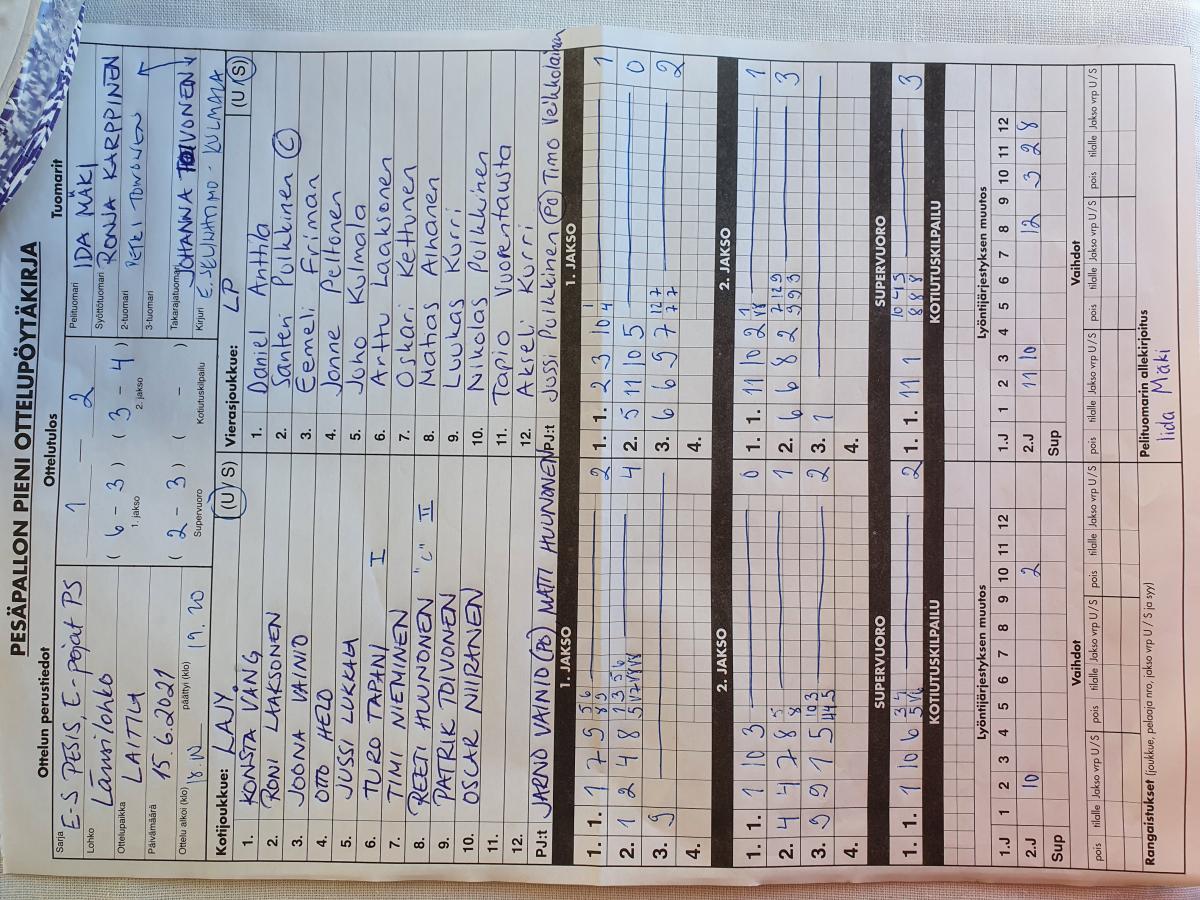 PESÄPALLON PIENI OTTELUPÖYTÄKIRJA
Ottelun perustiedot
Ottelutulos
Tuomarit
Sarja E-S PESIS, E-pojat PS
Lohko Länsilohko
Ottelupaikka LAITILA
Päivämäärä 15.6.2021
Ottelu alkoi (klo) 18.
päättyi (klo) 19.20
1 — 2
( 6 - 3 ) ( 3 - 4 )
1. jakso 2. jakso
( 2 - 3 ) ( - )
Supervuoro Kotiutuskilpailu
Pelituomari IDA MÄKI
Syöttötuomari RONJA KARPPINEN
2-tuomari PETRI
3-tuomari
Takarajatuomari JOHANNA TOIVONEN
Kirjuri
Kotijoukkue: LAJY (U / S)
1. KONSTA VANG
2. RONI LAAKSONEN
3. JOONA VAINIO
4. OTTO HELO
5. JUSSI LUKKALA
6. TURO TAPANI I
7. TIMI NIEMINEN
8. REETI HUUNONEN "C" II
9. PATRIK TOIVONEN
10. OSCAR NIIRANEN
11.
12.
PJ:t JARNO VAINIO (PJ) MATTI HUUNONEN
Vierasjoukkue: LP (U / S)
1. Daniel Anttila
2. Santeri Pulkkinen C
3. Eemeli Friman
4. Jonne Peltonen
5. Juho Kulmala
6. Arttu Laaksonen
7. Oskari Kettunen
8. Matias Alhanen
9. Luukas Kurri
10. Nikolas Pulkkinen
11. Tapio Vuorentausta
12. Akseli Kurri
PJ:t Jussi Pulkkinen (PJ) Timo Veikkolainen
1. JAKSO
1. 1. 1 7 9 5 2
2. 1 2 4 8 4
3. 9
4.
1. JAKSO
1. 1. 2 3 10 1
2. 5 11 10 5 0
3. 6 6 9 7 2
4.
2. JAKSO
1. 1. 1 10 3 0
2. 4 4 7 8 1
3. 9 9 1 5 2
4.
2. JAKSO
1. 1. 11 10 2 1
2. 6 6 8 2 3
3. 1
4.
SUPERVUORO
1. 1. 1 10 6 2
SUPERVUORO
1. 1. 11 1 3
KOTIUTUSKILPAILU
KOTIUTUSKILPAILU
Lyöntijärjestyksen muutos
1.J 1 2 3 4 5 6 7 8 9 10 11 12
2.J 10 2
Sup
Lyöntijärjestyksen muutos
1.J 1 2 3 4 5 6 7 8 9 10 11 12
2.J 11 10 12 3 2 8
Sup
Vaihdot
pois tilalle Jakso vrp U / S pois tilalle Jakso vrp U / S pois tilalle Jakso vrp U / S
Vaihdot
pois tilalle Jakso vrp U / S pois tilalle Jakso vrp U / S pois tilalle Jakso vrp U / S pois tilalle Jakso vrp U / S
Rangaistukset (joukkue, pelaaja nro, jakso vrp U / S ja syy)
Pelituomarin allekirjoitus
Iida Mäki